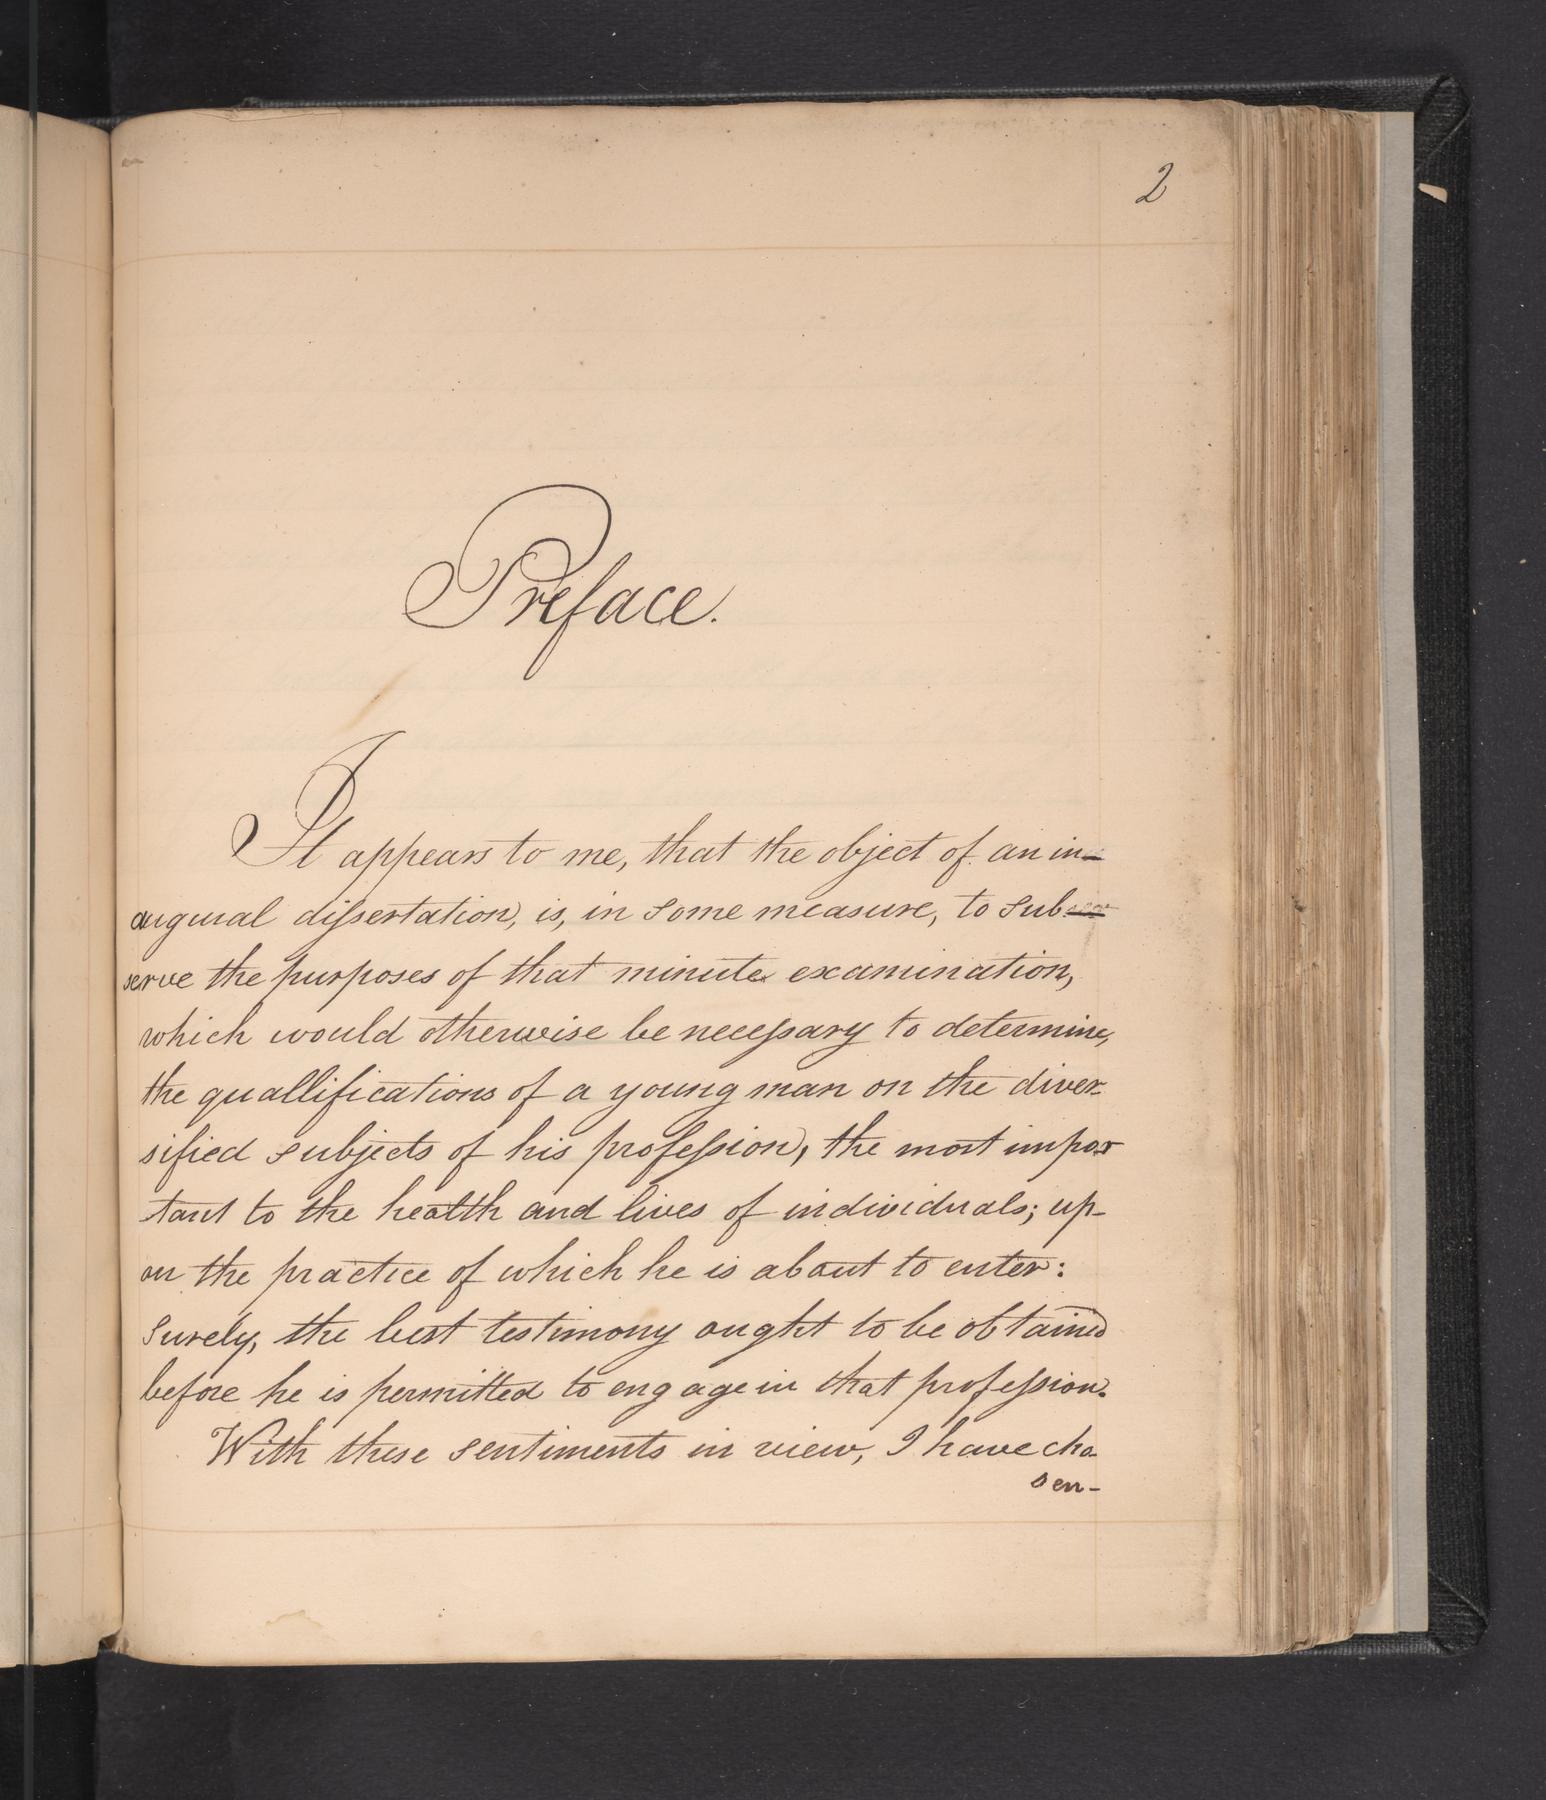 2
Preface.
It appears to me, that the object of an in-
augural dissertation, is, in some measure, to sub-
serve the purposes of that minute examination,
which would otherwise be necessary to determine,
the quallifications of a young man on the diver-
sified subjects of his profession, the most impor
tant to the health and lives of individuals; up-
on the practice of which he is about to enter:
Surely, the best testimony ought to be obtained
before he is permitted to engage in that profession.
With these sentiments in view, I have cho-
sen-